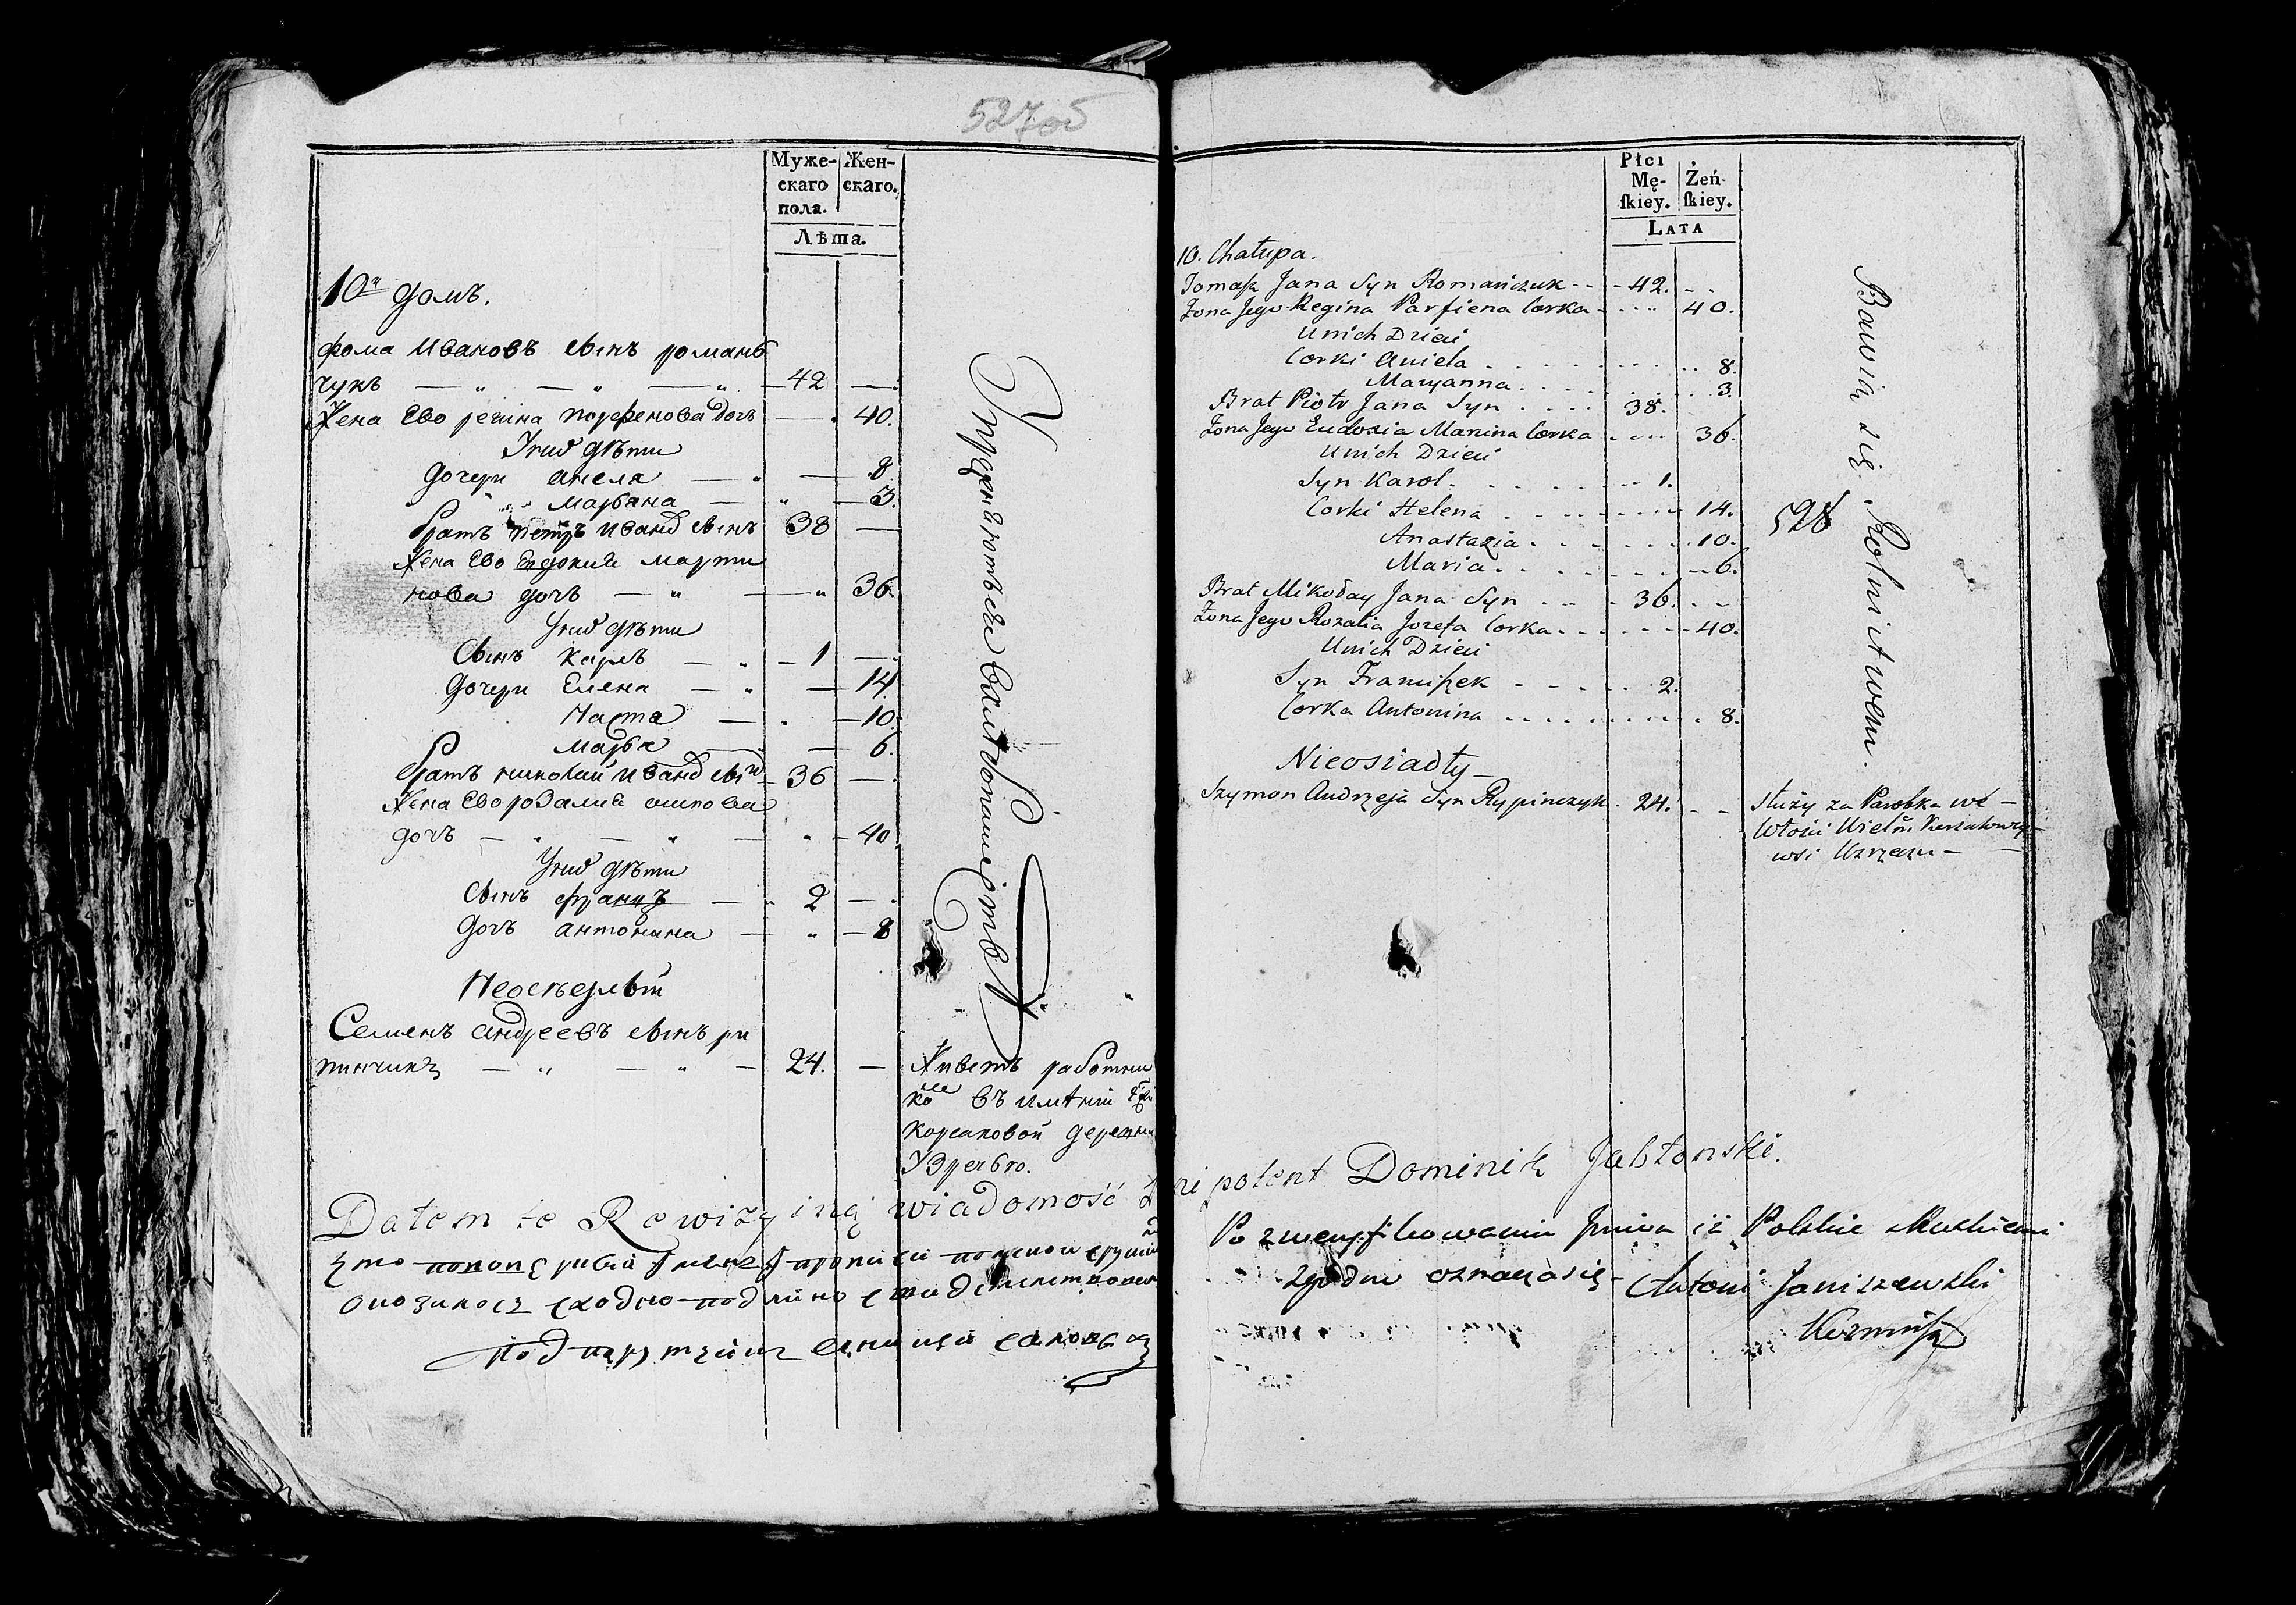 527об
Муже- Жен-
скаго скаго.
пола.
Лѣта.
10й домъ.
фома ивановъ сынъ романъ
чукъ — „ — „ — „ — 42 —
жена ево регина парфенова дочь — 40.
У них дѣти
дочери анеля — „ — 8
марьана — „ — 3.
братъ петръ иванов сынъ 38 —
жена ево евдокия марти
нова дочь — „ — „ 36.
У них дѣти
сынъ карлъ — „ — 1 —
дочери елена — „ — 14
Наста — „ — 10.
марья — 6.
братъ николай иванов сынъ 36 —
жена ево розалия осипова
дочь — „ — „ — „ — 40
У них дѣти
сынъ францъ — „ 2 —
дочь антонина — „ — 8
Неоселый
Семенъ андреевъ сынъ ри
пинчикъ — „ — „ — 24. —
Упражняются хлебопашеством
Живетъ работни
ком въ имѣнии
корсаковой деревни
Узречью.
Płci
Mę- Żeń-
ſkiey. ſkiey.
LATA
10. Chałupa.
Tomaſz Jana Syn Romańczuk - - - 42. - -
Żona Jego Regina Parfiena Corka - . . . 40.
U nich Dzieci
Corki Aniela . . . . . . 8.
Maryanna . . . . . . 3.
Brat Piotr Jana Syn . . . . 38.
Żona Jego Eudoxia Marcina Corka . . . . 36.
U nich Dzieci
Syn Karol . . . . . . - - 1.
Corki Helena . . . . . . 14.
Anastazia . . . . . . 10.
Maria . . . . . . 6.
Brat Mikołay Jana Syn . . . - 36. - -
Żona Jego Rozalia Jozefa Corka - - - - - 40.
U nich Dzieci
Syn Franciſzek - - - - . 2.
Corka Antonina . . . . . . . 8.
Nieosiadły —
Szymon Andrzeja Syn Rypinczyk . 24. - -
Bawią się Rolnictwem.
528
służy za Parobka we —
włości Wielm. Korsakowey —
wsi Uzrzeczu —
Dałem te Rewizyiną wiadomość Plenipotent Dominik Jabłonski.
Po zweryfikowaniu
zgodne oznacza się - Antoni Janiszewski